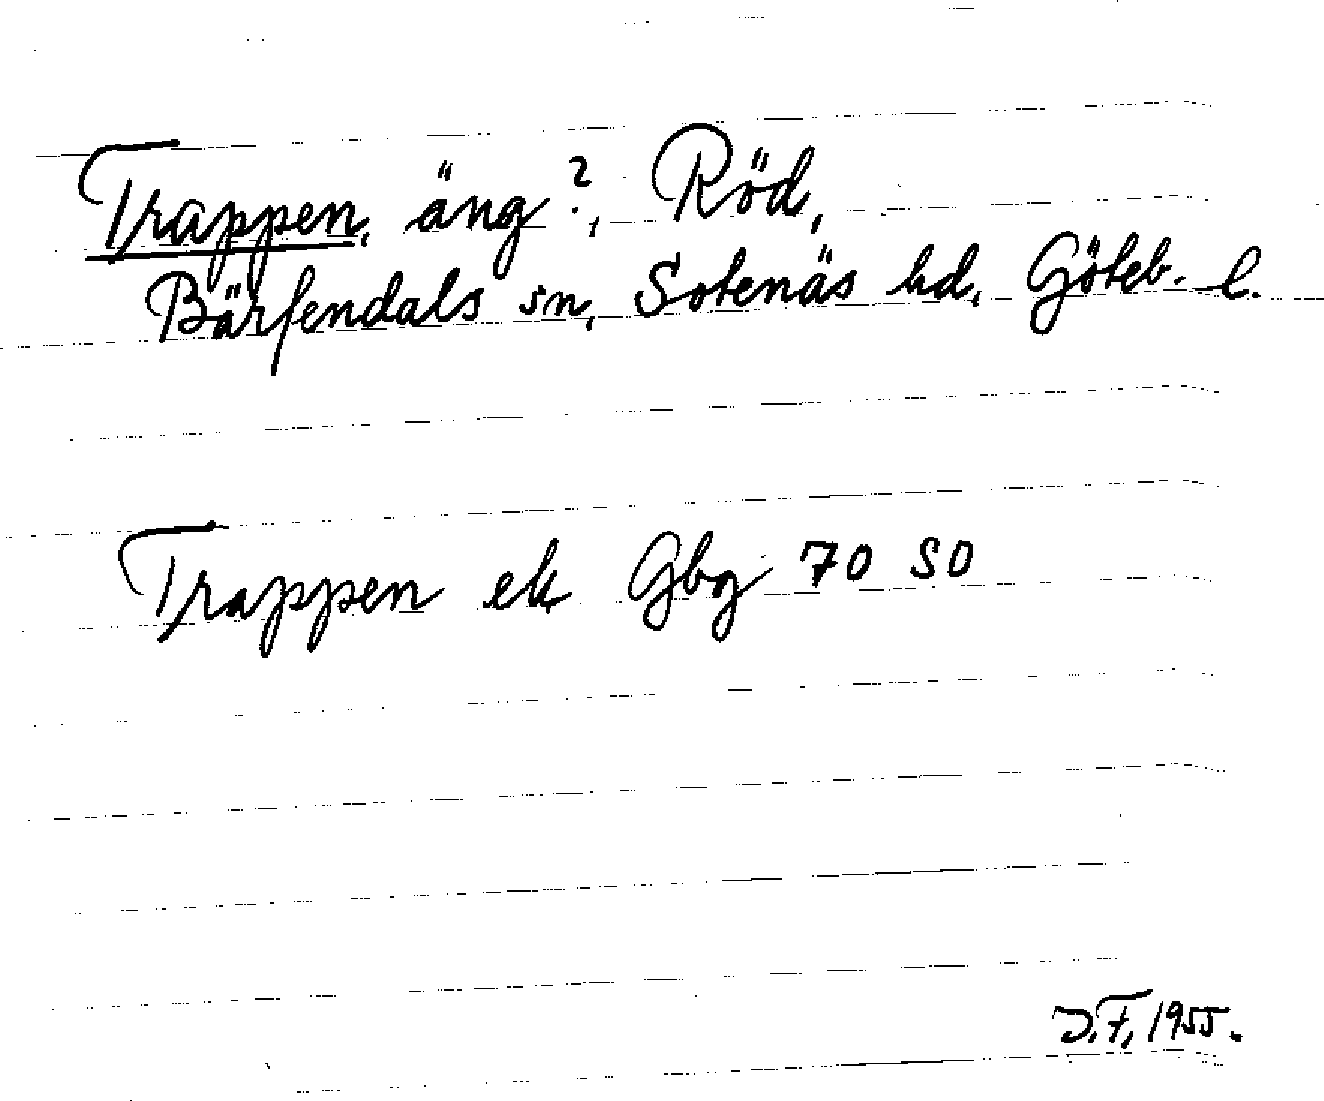 Trappen, äng?, Röd,
Bärfendals sn, Sotenäs hd, Göteb. l.
Trappen ek Gbg 70 SO
D.F. 1955.